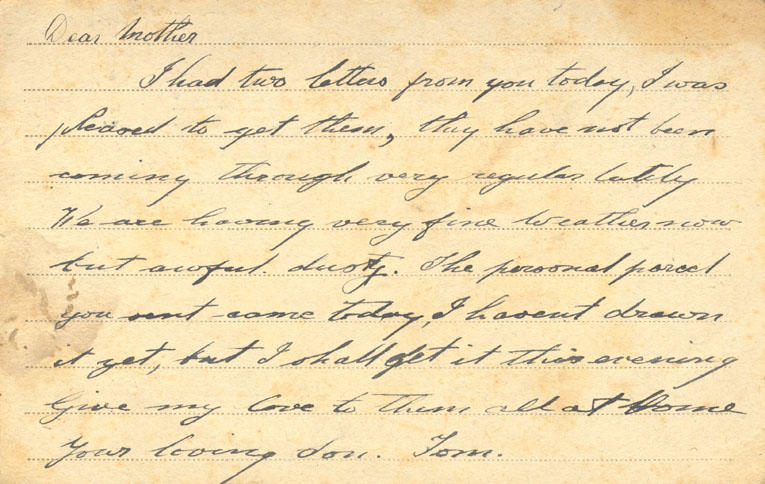 Dear Mother
I had two letters from you today, I was
pleased to get them, they have not been
coming through very regular lately
We are having very fine weather now
but awful dusty. The personal parcel
you sent came today, I havent drawn
it yet, but I shall get it this evening
Give my love to them all at Home
Your loving son. Tom.